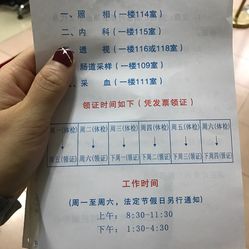 一、照 相(一楼114室)
二、内 科(一楼115室)
透 视(一楼116或118室)
肠道采样(一楼109室)
采 血(一楼111室)
领证时间如下(凭发票领证)
周一(体检) 周二(体检) 周三(体检) 周四(体检) 周五(体检) 周六(体检)
周五(领证) 周六(领证) 下周一(领证) 下周二(领证) 下周三(领证) 下周四(领证)
工作时间
(周一至周六,法定节假日另行通知)
上午:8:30-11:30
下午:1:30-4:30